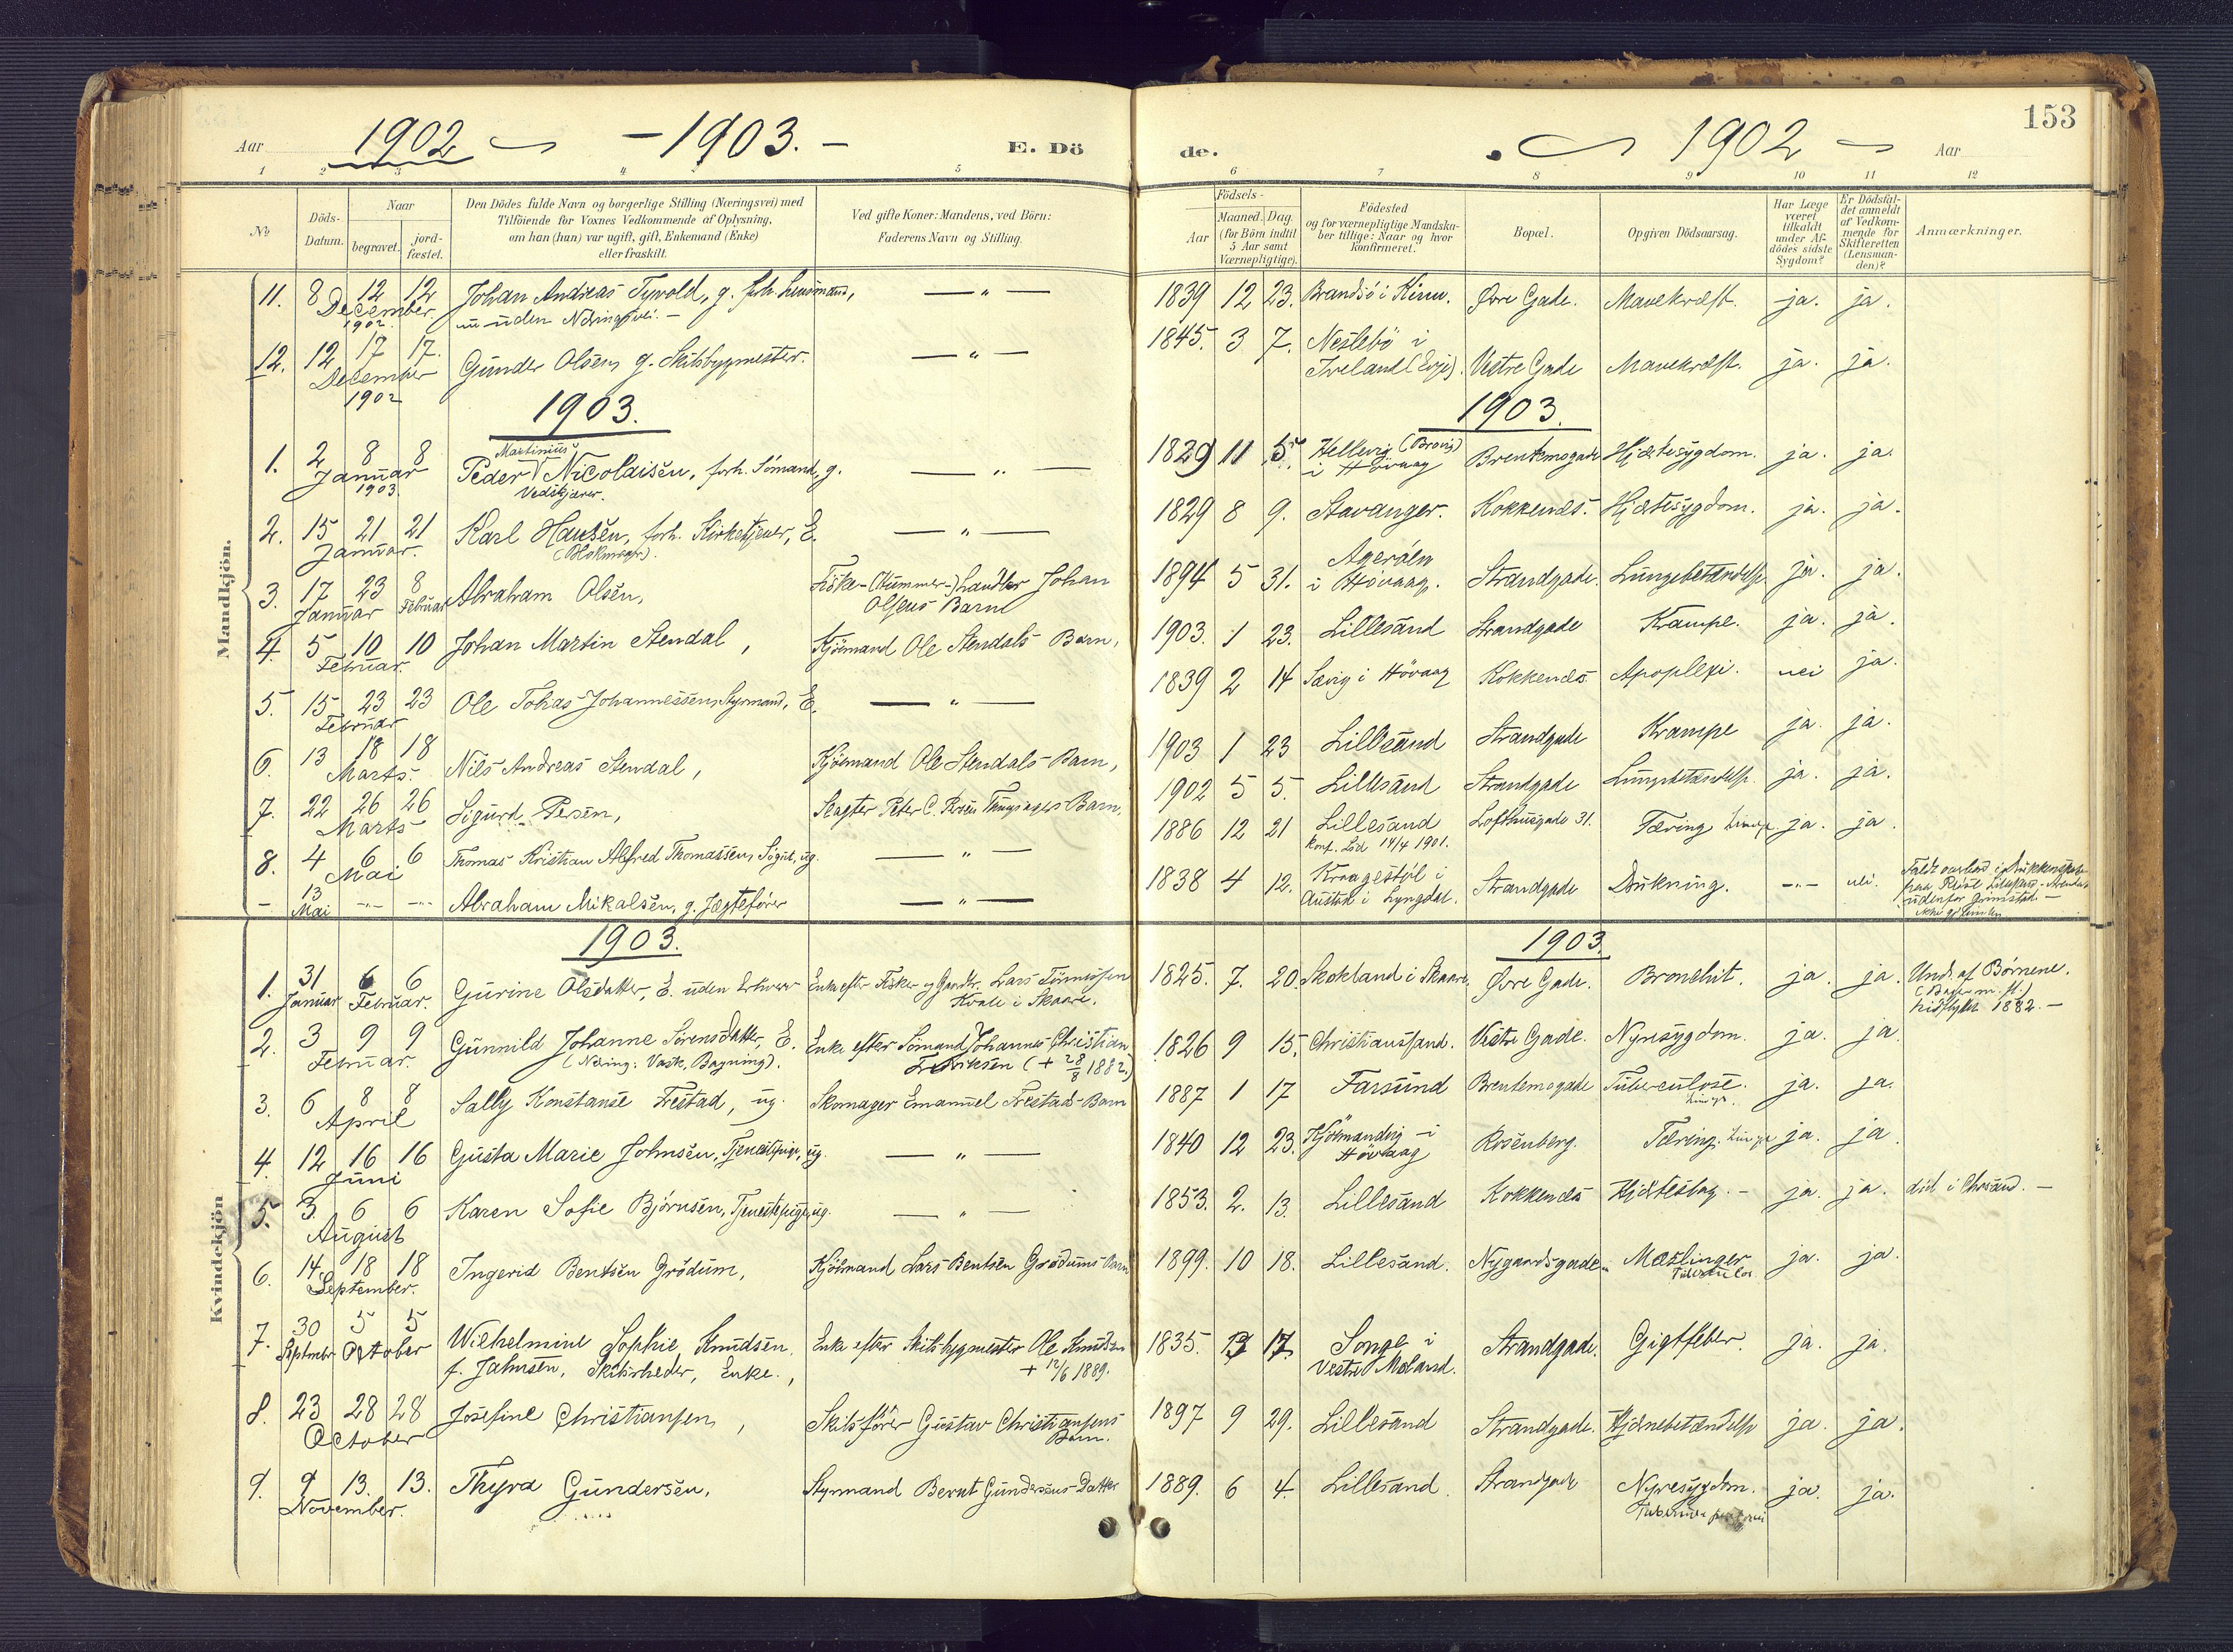 153
Aar 1902 - 1903. - E. Dö
de. 1902 Aar
1 2 3 4 5 6 7 8 9 10 11 12
№
Döds-Datum.
Naar
begravet.
jord-fæstet.
Den Dödes fulde Navn og borgerlige Stilling (Næringsvei) med
Tilföiende for Voxnes Vedkommende af Oplysning,
om han (hun) var ugift, gift, Enkemand (Enke)
eller fraskilt.
Ved gifte Koner: Mandens, ved Börn:
Faderens Navn og Stilling.
Födsels-
Aar
Maaned. Dag.
(for Börn indtil
5 Aar samt
Værnepligtige).
Födested
og for værnepligtige Mandska-
ber tillige: Naar og hvor
konfirmeret.
Bopæl.
Opgiven Dödsaarsag.
Har Læge
været
tilkaldt
under Af-
dødes sidste
Sygdom?
Er Dödsfal-
det anmeldt
af Vedkom-
mende for
Skifteretten
(Lensman-
den)?
Anmærkninger.
Mandkjön.
11. 8 12 12 December 1902. Johan Andreas Tyvold, g. forh. Lensmand, nu uden Næringsvei. - — " — 1839 12 23. Brandsö i Kinn. Øvre Gade. Mavekræft. ja. ja.
12. 12 17 17. December 1902 Gunder Olsen, g. Skibsbygmester. — " — 1845. 3 7. Neslebö i Iveland (Evje). Vestre Gade Mavekræft. ja. ja.
1903. 1903.
1. 2 8 8 Januar 1903. Peder Martinius Nicolaisen, forh. Sömand, g. Vedskjærer. — " — 1829 11 5. Hellevig (Brovig) i Hövaag Brentemogade Hjertesygdom. ja. ja.
2. 15 21 21 Januar. Karl Hansen, forh. Kirketjener, E. (Blokmager). — " — 1829 8 9. Stavanger. Kokkenes. Hjertesygdom. ja. ja.
3. 17 23 8 Januar Februar Abraham Olsen, Fiske-(Hummer-)handler Johan Olsens Barn 1894 5 31. Ageröen i Hövaag. Strandgade. Lungebetændelse ja. ja.
4. 5 10 10 Februar. Johan Martin Stendal, Kjömand Ole Stendals Barn, 1903. 1 23. Lillesand Strandgade Krampe. ja. ja.
5. 15 23 23 Februar Ole Tobias Johannessen, Styrmand, E. — " — 1839 2 14 Sævig i Hövaag Kokkenes Apoplexi. nei ja.
6. 13 18 18 Marts. Nils Andreas Stendal, Kjömand Ole Stendals Barn, 1903 1 23 Lillesand Strandgade Krampe ja. ja.
7. 22 26 26 Marts Sigurd Persen, Slagter Peter C. Barn, 1902 5 5. Lillesand Strandgade Lungebetændelse. ja. ja.
8. 4 6 6 Mai Thomas Kristian Alfred Thomassen, Sögut, ug. — " — 1886 12 21 Lillesand Konf. Lsd 14/4 1901. Lofthusgade 31. Tæring Lunge ja. ja.
- 13 Mai -"- -"- Abraham Mikalsen, g. Jægtefører — " — 1838 4 12. Kraagestöl i Austad i Lyngdal. Strandgade Drukning. -"- nei. Faldt overbord i Drukkenskab paa Reise Lillesand-Arendal udenfor Grimstad. -
Kvindekjön
1903. 1903.
1. 31 6 6 Januar Februar. Gurine Olsdatter, E. uden Erhverv Enke efter Fisker og Gaardbr. Lars Tönnesen Kvale i Skaare. 1825. 7. 20. Stokland i Skaare. Øvre Gade. Bronchit. ja. ja. Und. af Börnene. (Bager m. fl.) hidflyttet 1882. -
2. 3 9 9 Februar. Gunnild Johanne Sörensdatter, E. (Næring: Vask, Bagning). Enke efter Sömand Johannes Christian Fredriksen (+ 28/8 1882.) 1826 9 15. Christianssand. Vestre Gade. Nyresygdom. ja. ja
3. 6 8 8 April Sally Konstanse Frestad, ug. Skomager Emanuel Frestads Barn 1887 1 17 Farsund Brentemogade Tuberculose. Lunge. ja. ja.
4. 12 16 16 Juni Gusta Marie Johnsen, Tjenestepige, ug. — " — 1840 12 23. Kjömandvig i Hövaag Rosenberg. Tæring. Lunge ja. ja
5. 3. 6 6 August Karen Sofie Björnsen, Tjenestepige, ug. — " — 1853. 2. 13. Lillesand Kokkenes Hjerteslag. - ja. ja. död i Chrsand. -
6. 14 18 18 September. Ingerid Bentsen Grödum, Kjömand Lars Bentsen Grödums Barn 1899. 10 18. Lillesand. Nygaardsgade. Mæslinger Tuberculos ja. ja.
7. 30 5 5 September October Wilhelmine Sophie Knudsen. f. Jahnsen, Skibsrheder, Enke., Enke efter Skibsbygmester Ole Knudsen + 12/6 1889. 1835. 12 17. Songe i Vestre Moland. Strandgade. Gigtfeber. ja. ja.
8. 23 28 28 October Josefine Christiansen, Skibsfører Gustav Christiansens Barn. 1897 9 29. Lillesand Strandgade. Hjernebetændelse ja. ja.
9. 9 13. 13. November. Thyra Gundersen, Styrmand Bernt Gundersens Datter 1889. 6 4. Lillesand. Strandgade Nyresygdom. ja. ja.